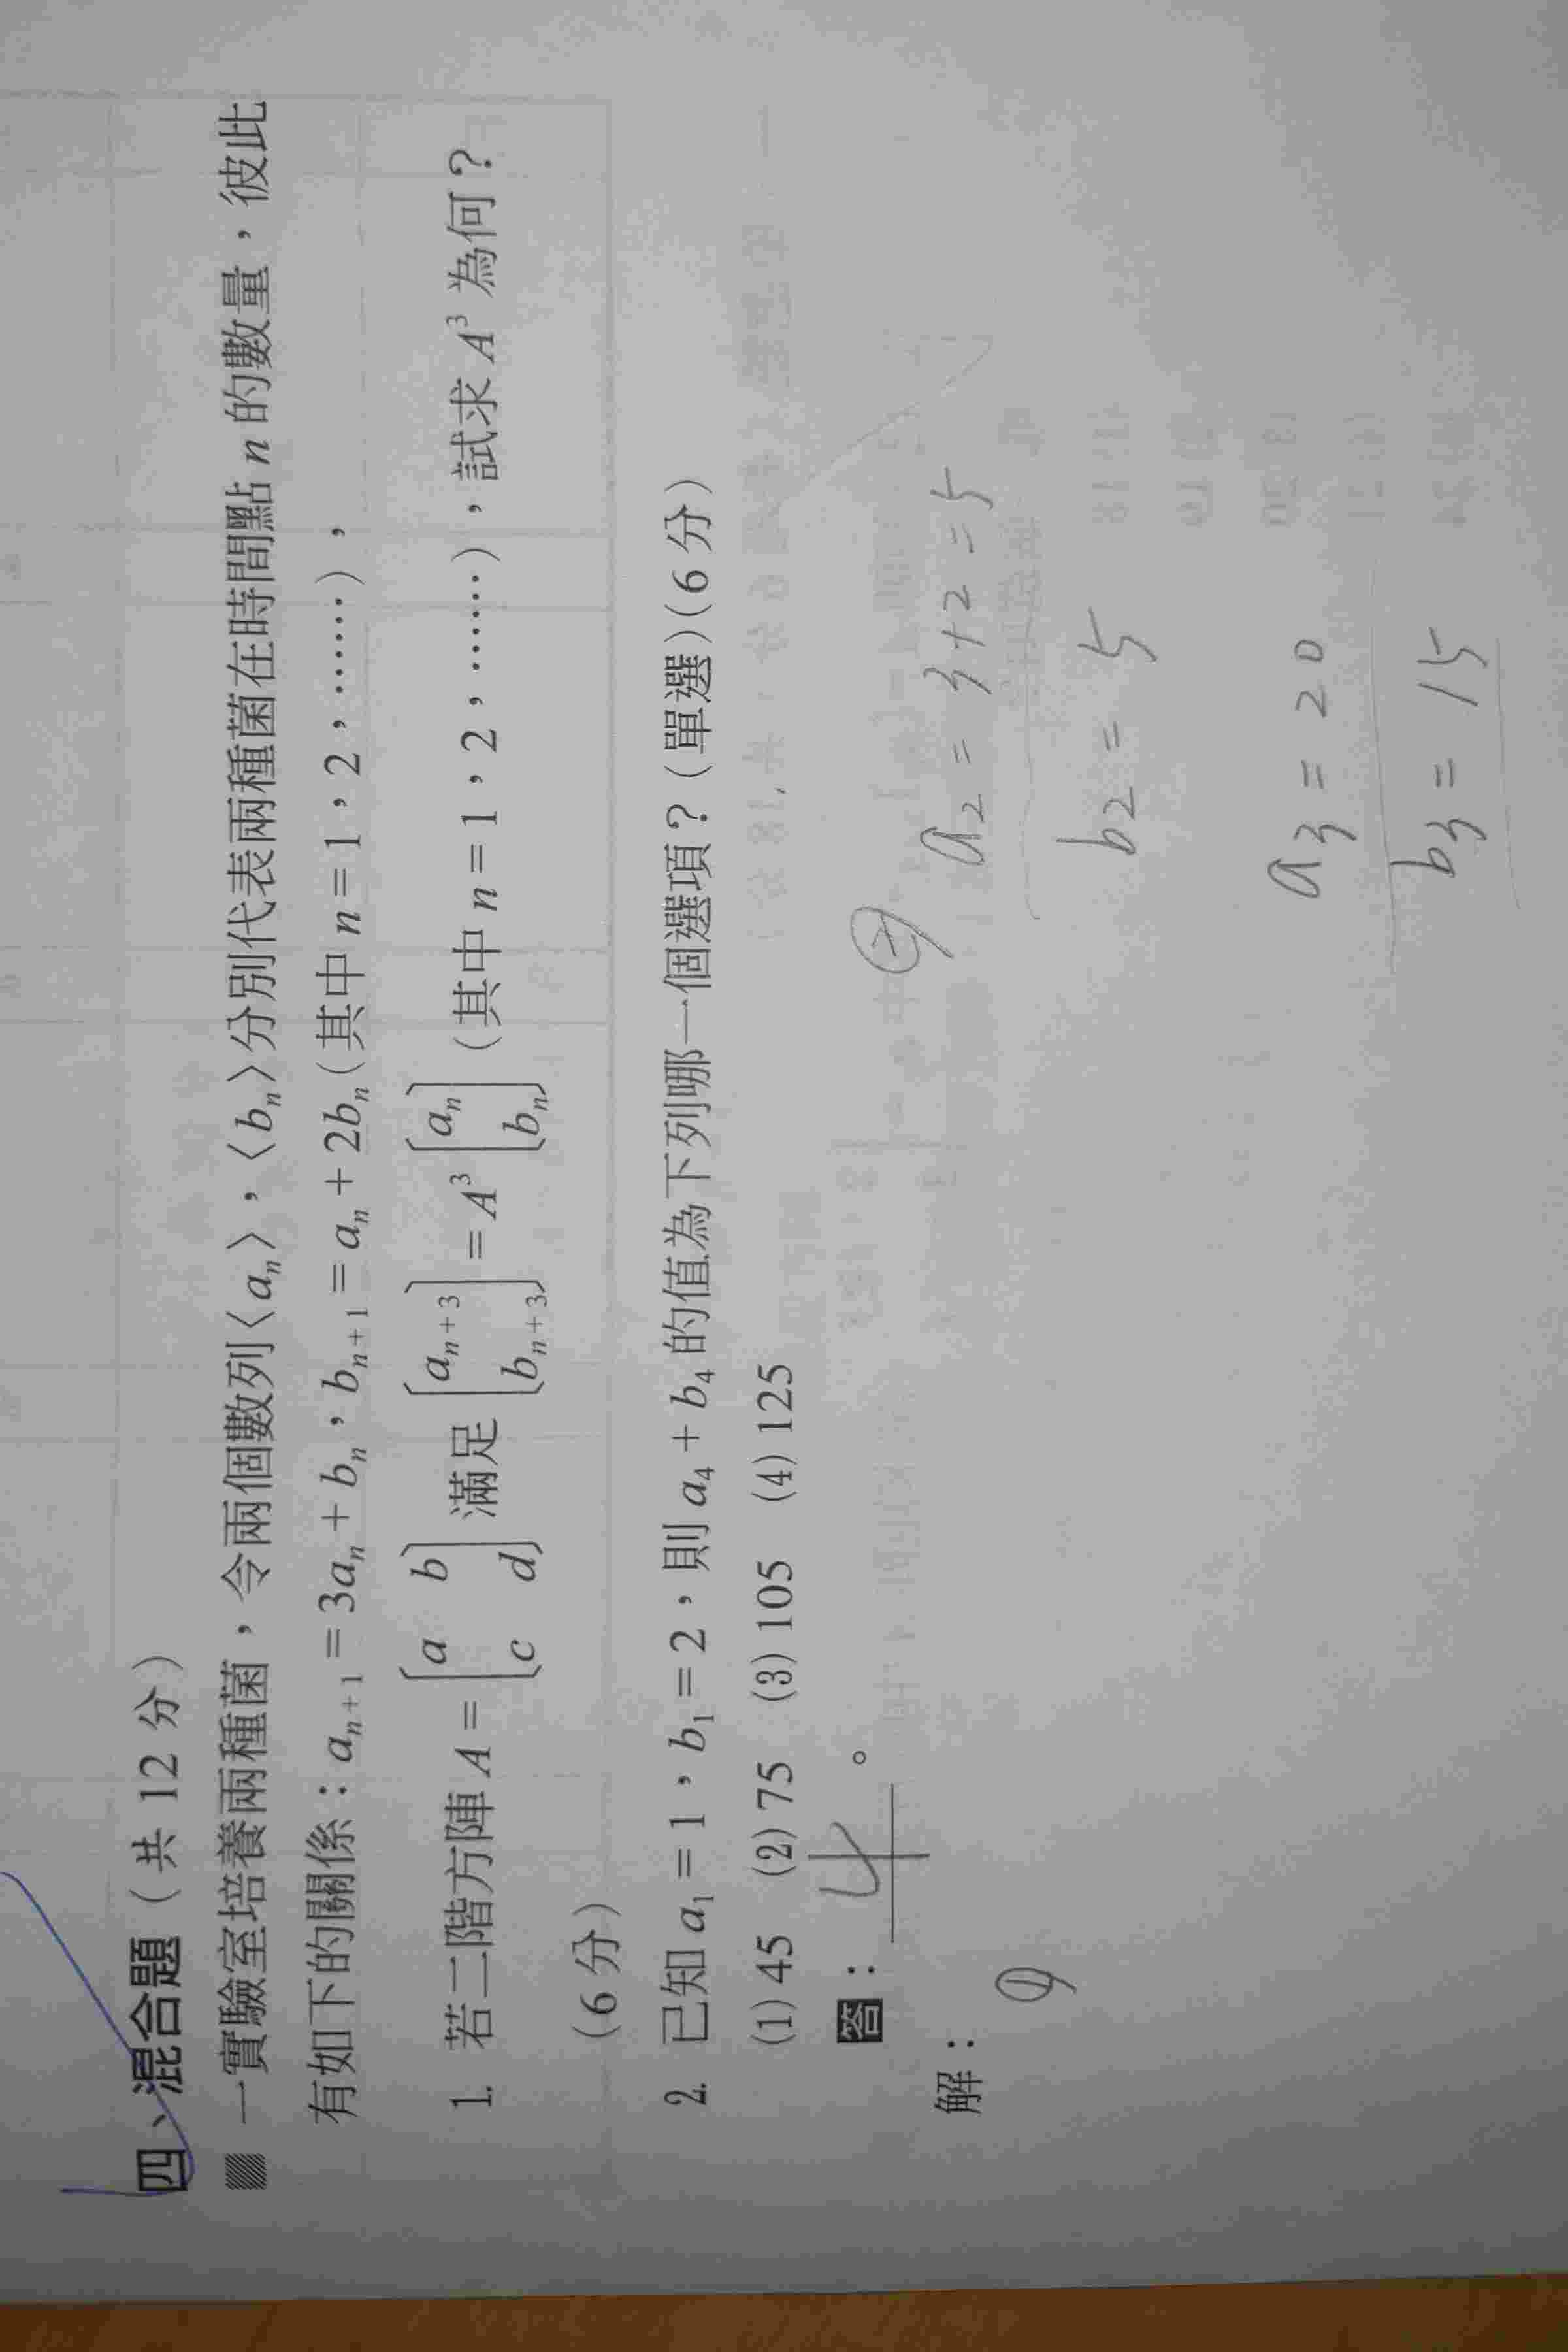 四、混合題(共 12 分)
▨ 一實驗室培養兩種菌,令兩個數列〈aₙ〉,〈bₙ〉分別代表兩種菌在時間點 n 的數量,彼此
有如下的關係:aₙ₊₁ = 3aₙ + bₙ,bₙ₊₁ = aₙ + 2bₙ(其中 n = 1,2,……),
1. 若二階方陣 A = [a b; c d] 滿足 [aₙ₊₃; bₙ₊₃] = A³ [aₙ; bₙ](其中 n = 1,2,……),試求 A³ 為何?
(6 分)
2. 已知 a₁ = 1,b₁ = 2,則 a₄ + b₄ 的值為下列哪一個選項?(單選)(6 分)
(1) 45 (2) 75 (3) 105 (4) 125
答: 4 。
解:
a₂ = 3+2 = 5
b₂ = 5
a₃ = 20
b₃ = 15